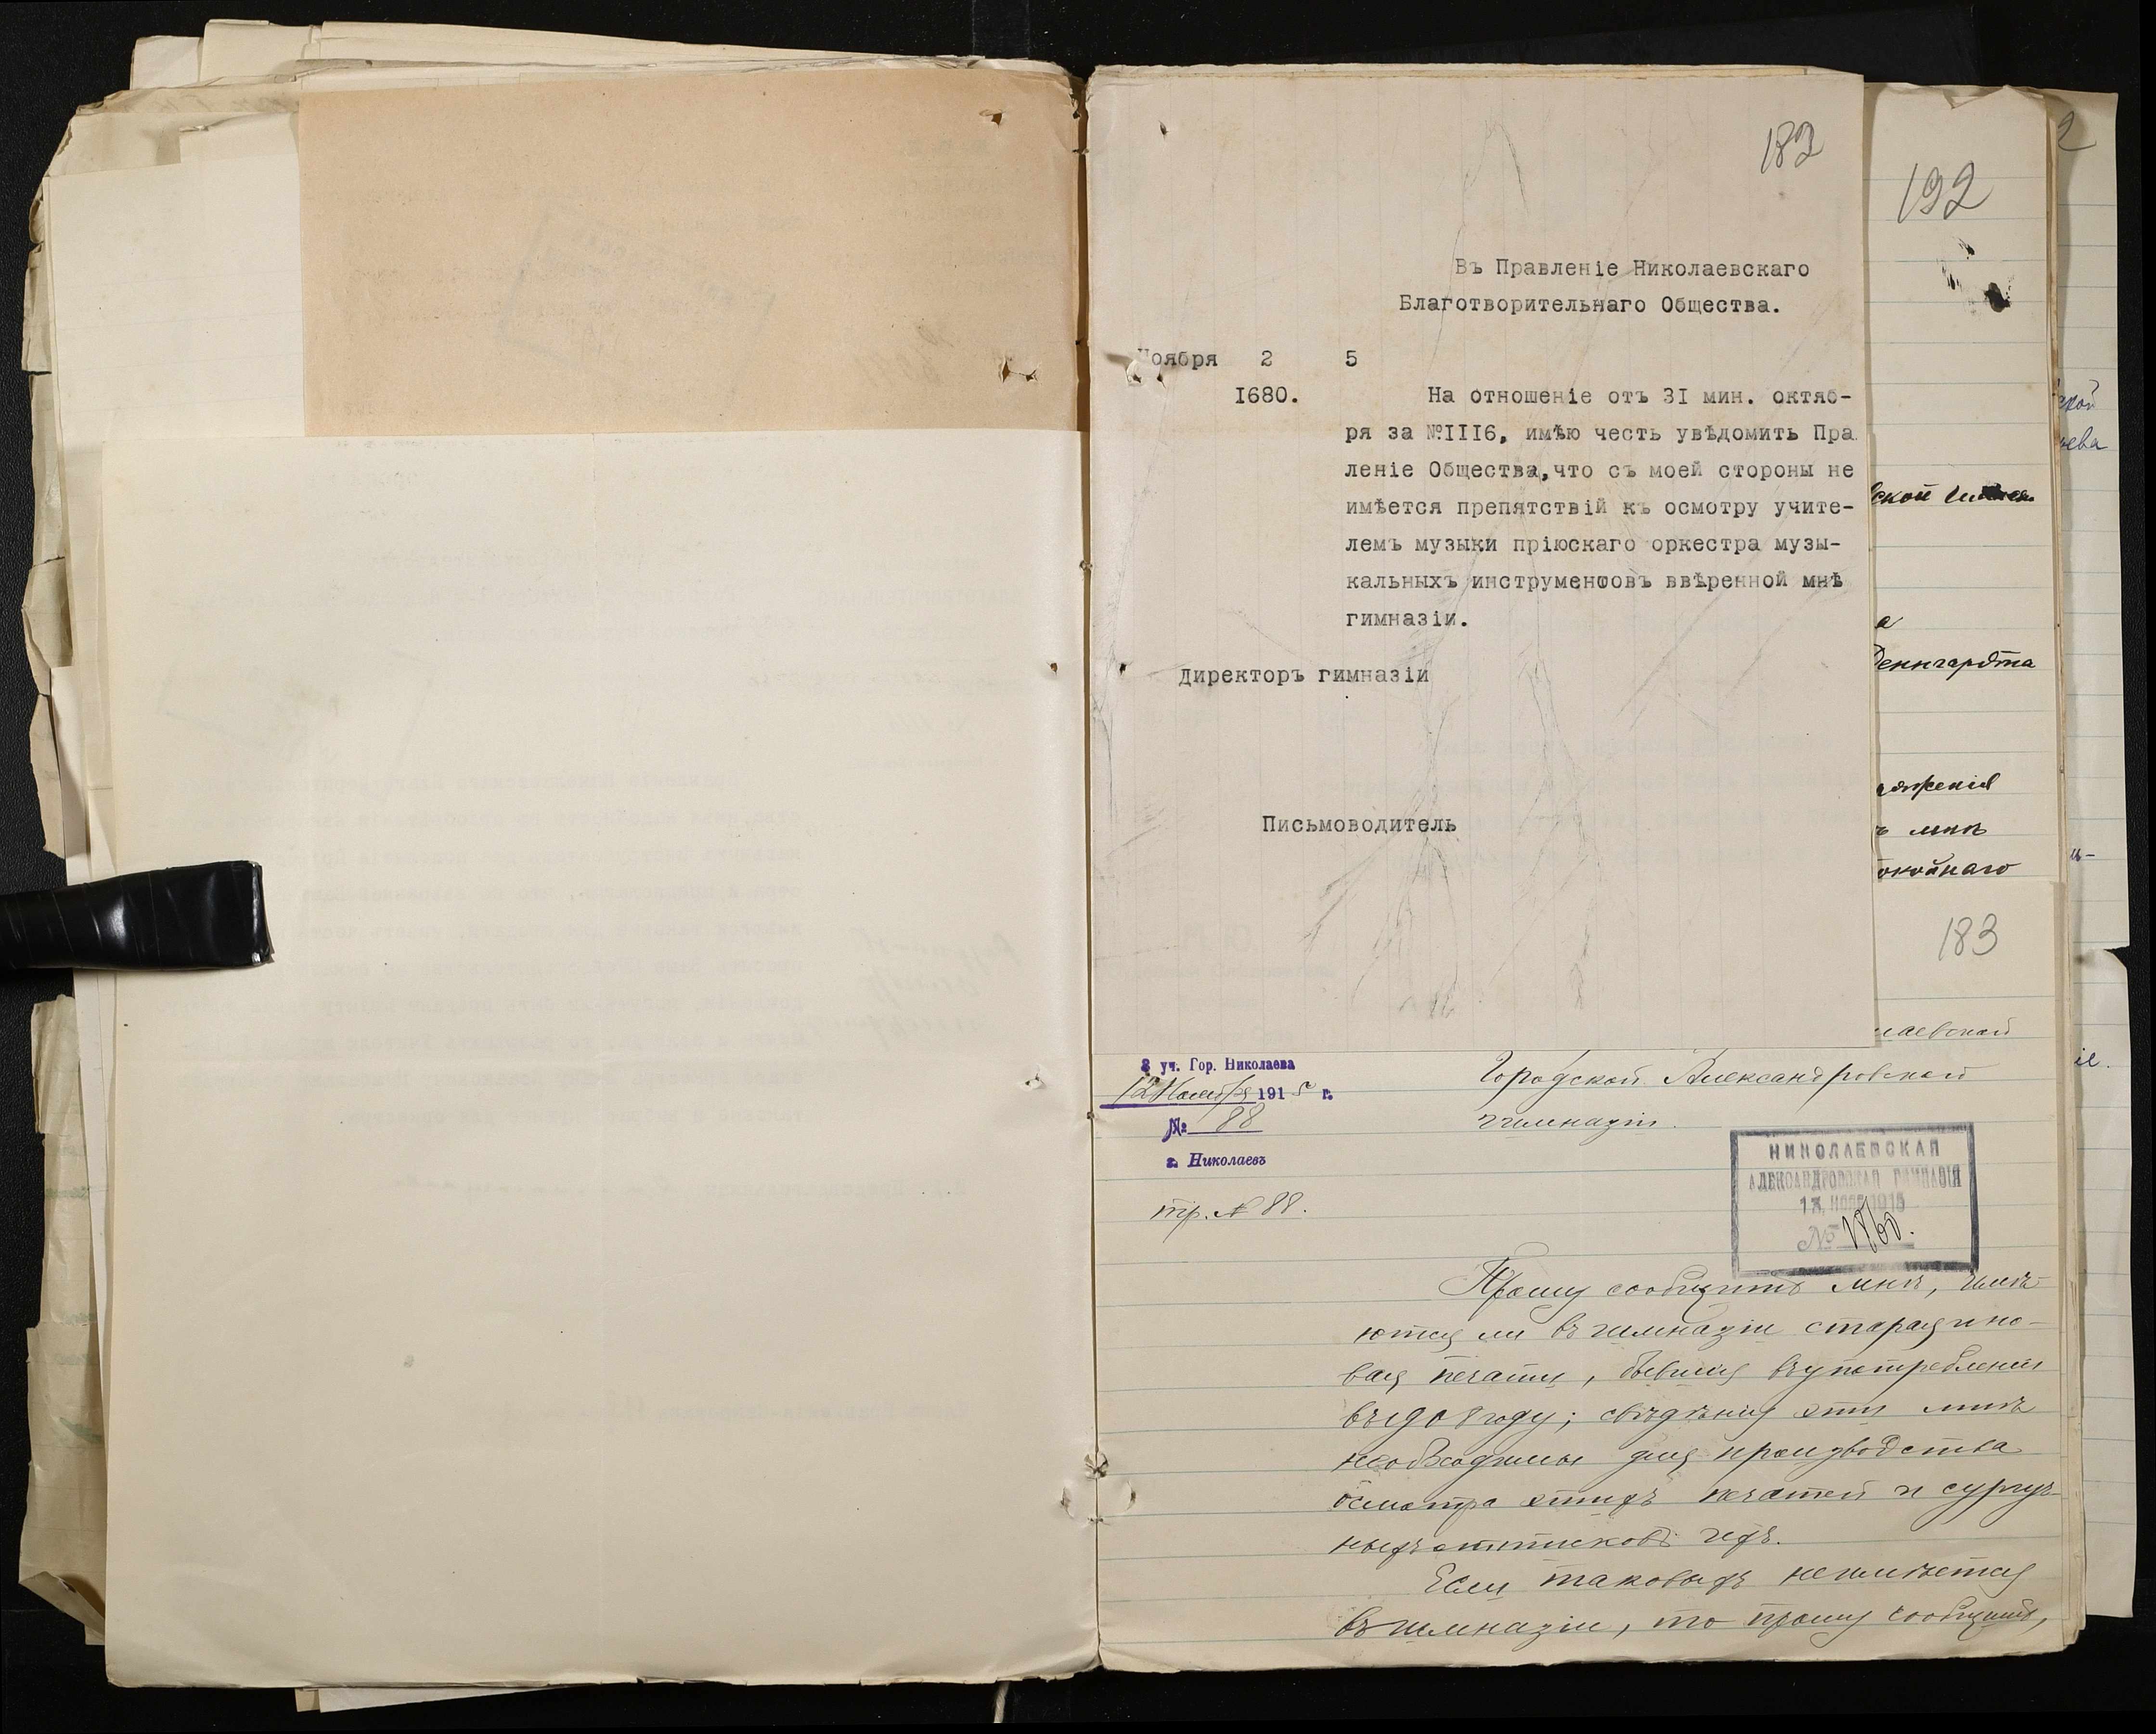 182
Въ Правленіе Николаевскаго
Благотворительнаго Общества.
Ноября 2 5
I680.
На отношеніе отъ 3I мин. октяб-
ря за №III6, имѣю честь увѣдомить Пра
леніе Общества,что съ моей стороны не
имѣется препятствій къ осмотру учите-
лемъ музыки пріюскаго оркестра музы-
кальныхъ инструментовъ ввѣренной мнѣ
гимназіи.
Директоръ гимназіи
Письмоводитель
192
2
ской
ева
ской
а
Денгардта
оженія
ъ мнѣ
окойнаго
183
лаевской
3 уч. Гор. Николаева
12 Ноября 1915 г.
№ 88
г. Николаевъ
пр. № 88.
Городской Александровской
гимназіи.
НИКОЛАЕВСКАЯ
АЛЕКСАНДРОВСКАЯ ГИМНАЗІЯ
13 НОЯБ 1915
№ 1860.
Прошу сообщить мнѣ, имѣ-
ются ли въ гимназіи старая и но-
вая печати, бывшія въ употребленіи
въ 1908 году; свѣдѣнія эти мнѣ
необходимы для производства
осмотра этихъ печатей и сургуч-
ныхъ оттисковъ ихъ.
Если таковыхъ не имѣется
въ гимназіи, то прошу сообщить,